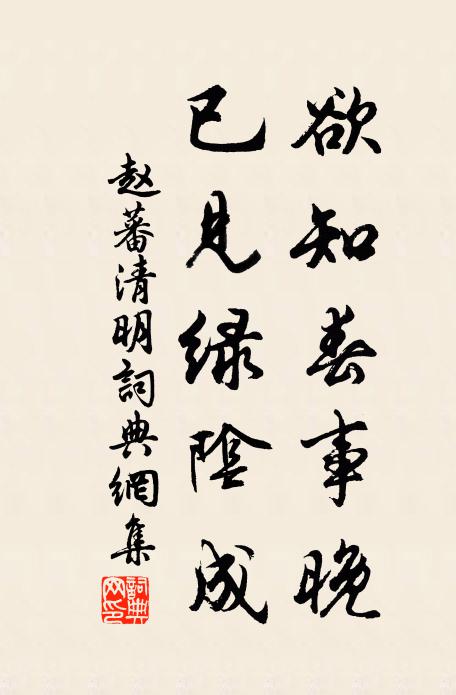 欲知春事晚
已見緑陰成
赵蕃清明詞典網集
詞典网印